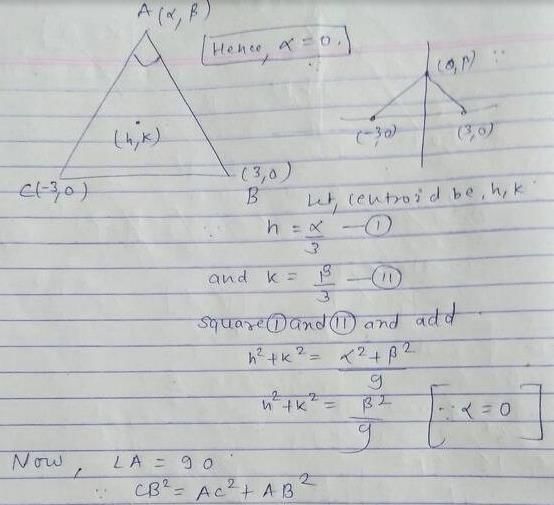 A(α, β)
Hence, α = 0.
∵
(0, β)
(h, k)
(-3, 0)
(3, 0)
C(-3, 0)
(3, 0)
B
Let, centroid be, h, k
∵ h = α/3 — (I)
and k = β/3 — (II)
square (I) and (II) and add
h² + k² = (α² + β²)/9
h² + k² = β²/9 [∵ α = 0]
Now, ∠A = 90
∵ CB² = AC² + AB²